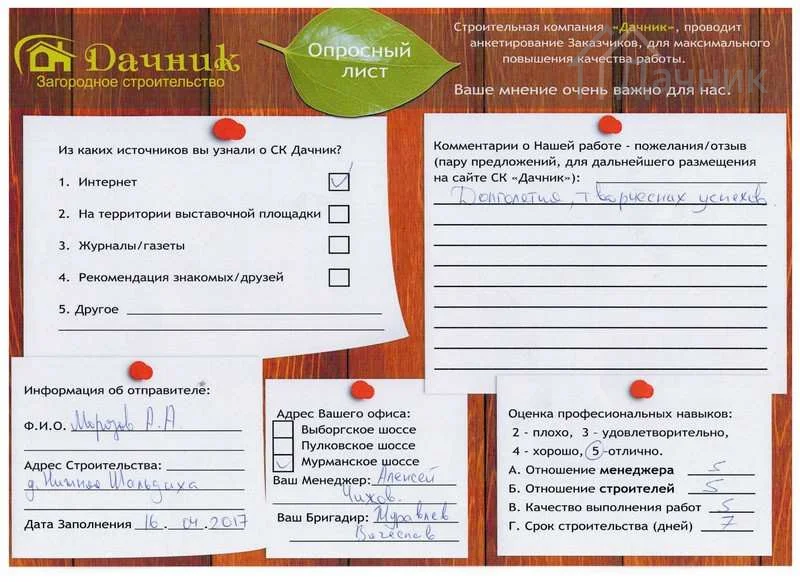 Дачник
Загородное строительство
Опросный
лист
Строительная компания «Дачник», проводит
анкетирование Заказчиков, для максимального
повышения качества работы.
Ваше мнение очень важно для нас.
Дачник
Из каких источников вы узнали о СК Дачник?
1. Интернет
2. На территории выставочной площадки
3. Журналы/газеты
4. Рекомендация знакомых/друзей
5. Другое
Комментарии о Нашей работе - пожелания/отзыв
(пару предложений, для дальнейшего размещения
на сайте СК «Дачник»):
Долголетия, творческих успехов.
Информация об отправителе:
Ф.И.О. Морозов А.А
Адрес Строительства:
д. Нижняя Шальдиха
Дата Заполнения 16.04.2017
Адрес Вашего офиса:
Выборгское шоссе
Пулковское шоссе
Мурманское шоссе
Ваш Менеджер: Алексей
Чижов.
Ваш Бригадир: Муравлев
Вячеслав
Оценка професиональных навыков:
2 - плохо, 3 - удовлетворительно,
4 - хорошо, 5 -отлично.
А. Отношение менеджера 5
Б. Отношение строителей 5
В. Качество выполнения работ 5
Г. Срок строительства (дней) 7